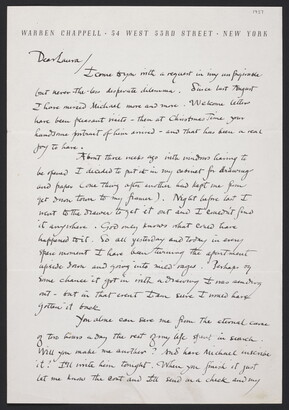 1937
WARREN CHAPPELL · 54 WEST 53RD STREET · NEW YORK
Dear Laura /
I come to you with a request in my unforgivable
(but never-the-less desperate) dilemma. Since last August
I have missed Michael more and more. Welcome letters
have been pleasant visits - then at Christmas time your
handsome portrait of him arrived - and that has been a real
joy to have.
About three weeks ago with windows having to
be opened I decided to put it in my cabinet for drawings
and paper (one thing after another had kept me from
get down town to my framer). Night before last I
went to the drawer to get it out and I couldn't find
it anywhere. God only knows what could have
happened to it. So all yesterday and today in every
spare moment I have been turning the apartment
upside down and going into mild rages. Perhaps by
some chance it got in with a drawing I was sending
out - but in that event I am sure I would have
gotten it back.
You alone can save me from the eternal curse
of two hours a day the rest of my life spent in search.
Will you make me another? And have Michael inscribe
it? I'll write him tonight. When you finish it just
let me know the cost and I'll send you a check, and my